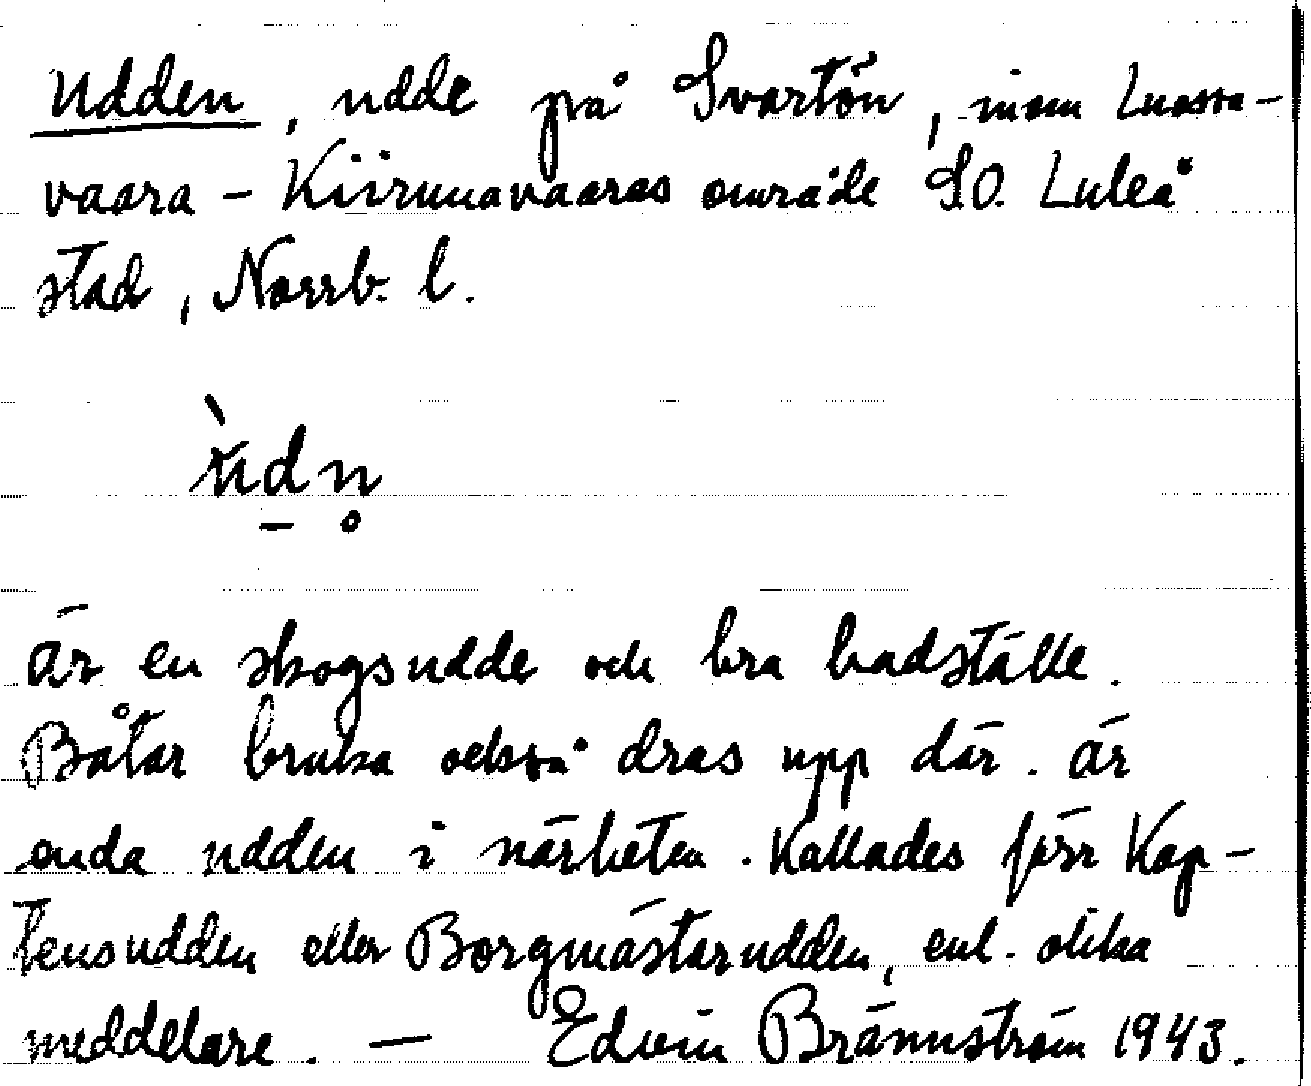 Udden, udde på Svartön, inom Luossa-
vaara - Kiirunavaaras område SO. Luleå
stad, Norrb. l.
är en skogsudde och bra badställe.
Båtar bruka också dras upp där. är
enda udden i närheten. Kallades förr Kap-
tensudden eller Borgmästarudden, enl. olika
meddelare. — Edvin Brännström 1943.